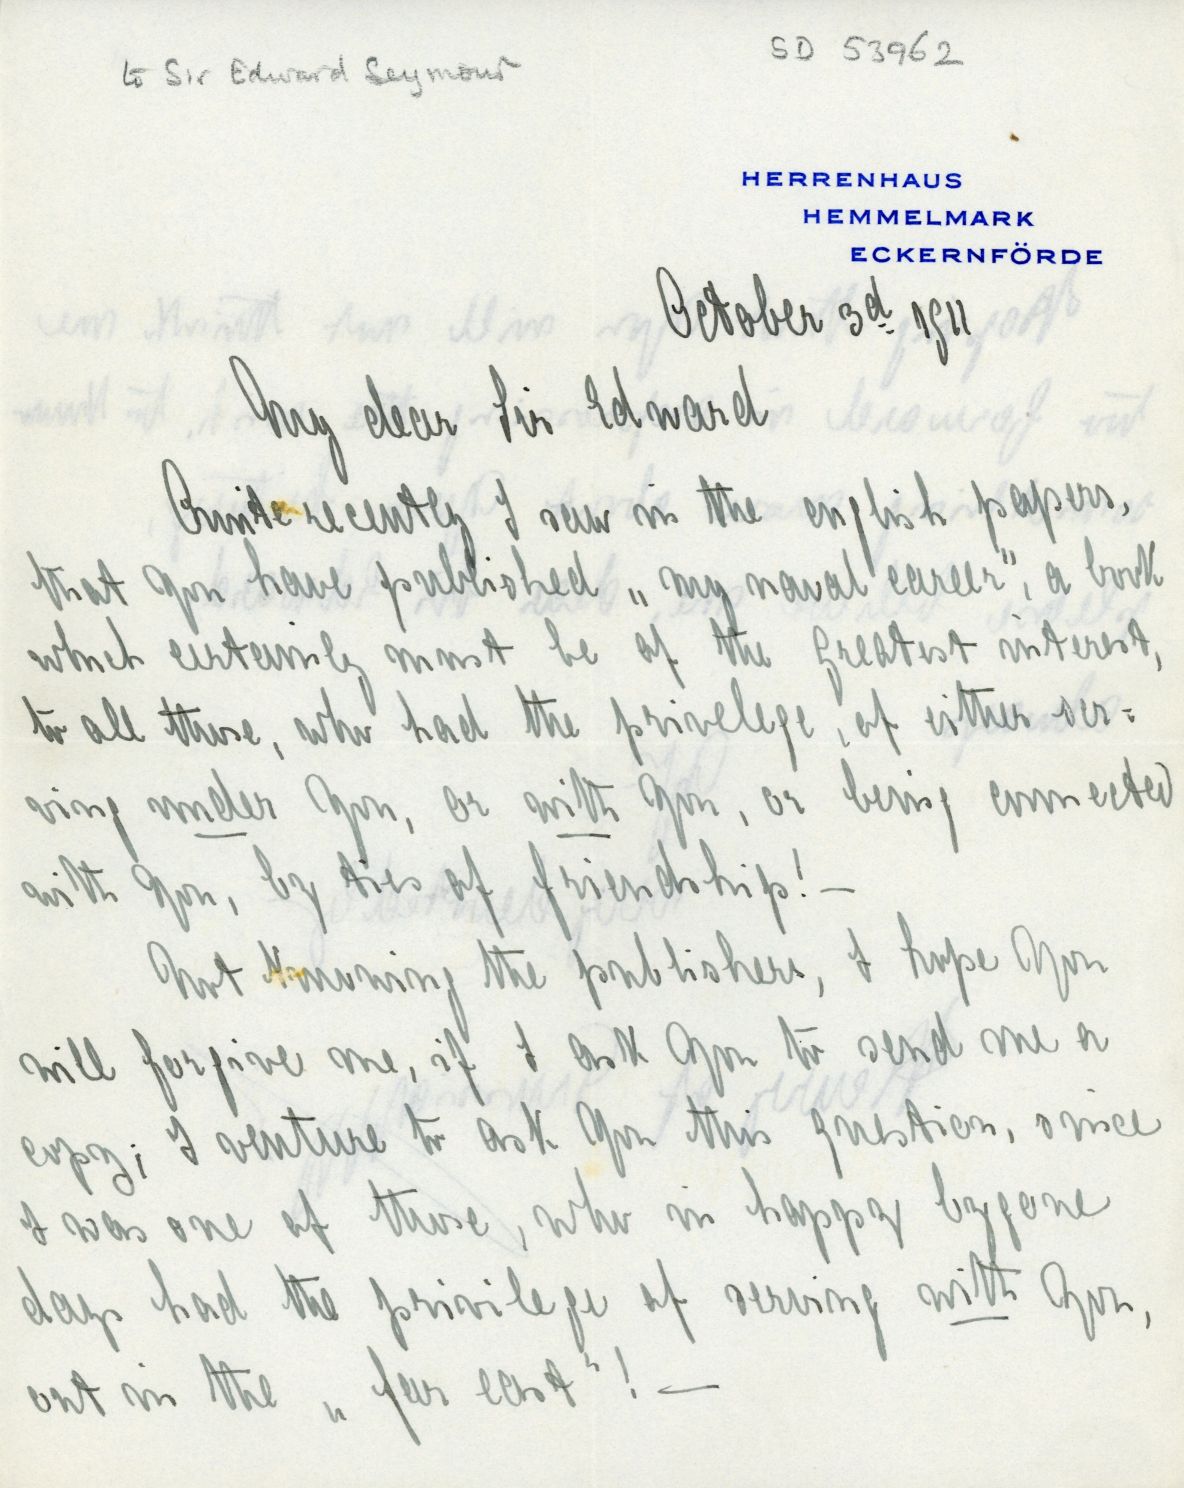 to Sir Edward Seymour
SD 53962
HERRENHAUS
HEMMELMARK
ECKERNFÖRDE
October 3d. 1911
My dear Sir Edward
Quite recently I saw in the english papers,
that You have published „my naval career", a book
which certainly must be of the greatest interest,
to all those, who had the privelege, of either ser=
ving under You, or with You, or being connected
with You, by ties of friendship! —
Not knowing the publishers, I hope You
will forgive me, if I ask You to send me a
copy; I venture to ask You this question, since
I was one of those, who in happy bygone
days had the privilege of serving with You,
out in the „far east"! —